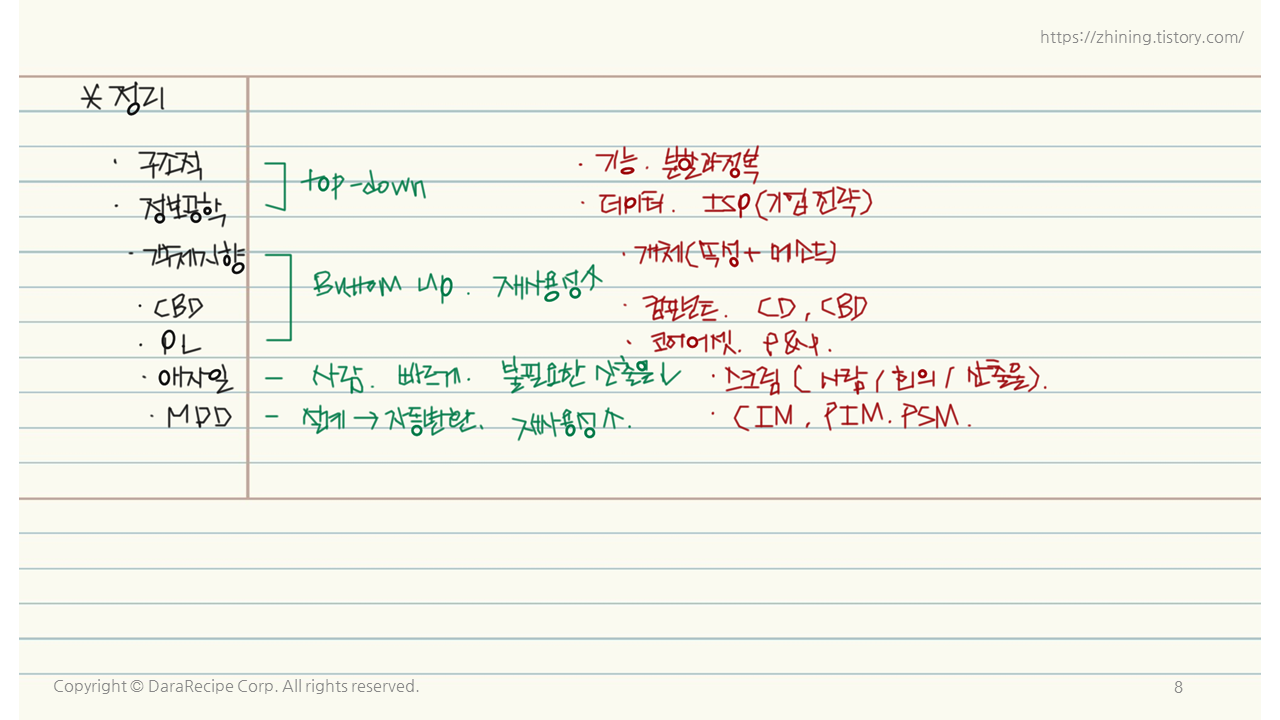 https://zhining.tistory.com/
* 정리
· 구조적 top-down · 기능. 분할과정복
· 정보공학 · 데이터. ISP(기업전략)
· 객체지향 · 객체(속성+메소드)
Buttom up. 재사용성↑
· CBD · 컴포넌트. CD, CBD
· PL · 코어에셋. P&P.
· 애자일 - 사람. 빠르게. 불필요한 산출물↓ · 스크럼(사람/회의/산출물).
· MDD - 설계→자동변환. 재사용성↑. · CIM, PIM. PSM.
Copyright © DaraRecipe Corp. All rights reserved.
8